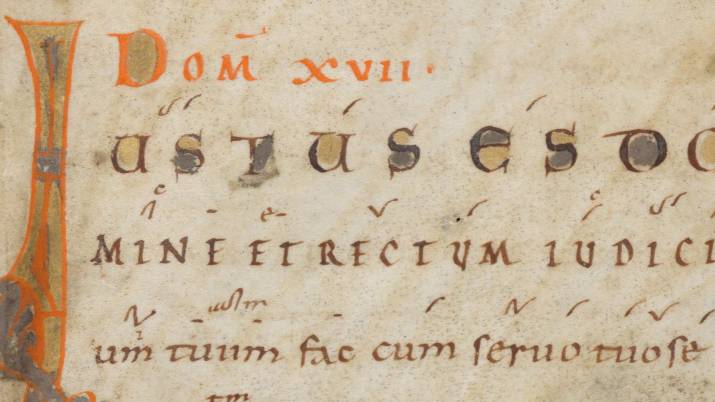 Dom̄ XVII·
IUSTUS ES DO
MINE ET RECTUM IUDICI
um tuum fac cum seruo tuo se